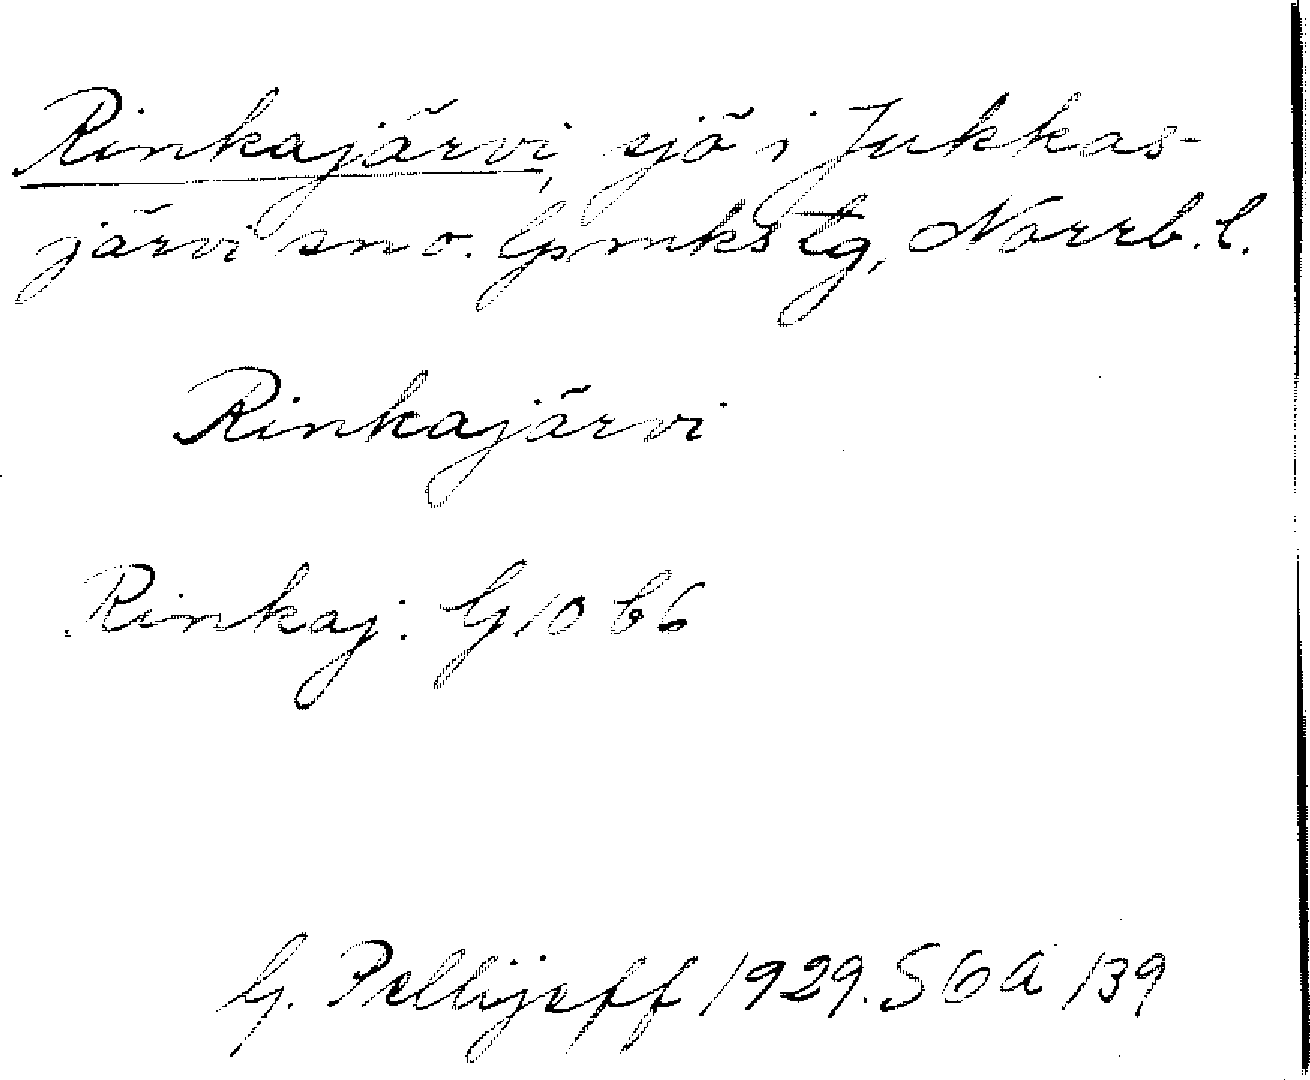 Rinkajärvi, sjö i Jukkas-
järvi sn o. Gmkstg, Norrb. l.
Rinkajärvi
Rinkaj: G 10 b6
G. Pellijeff 1929. SOA 139